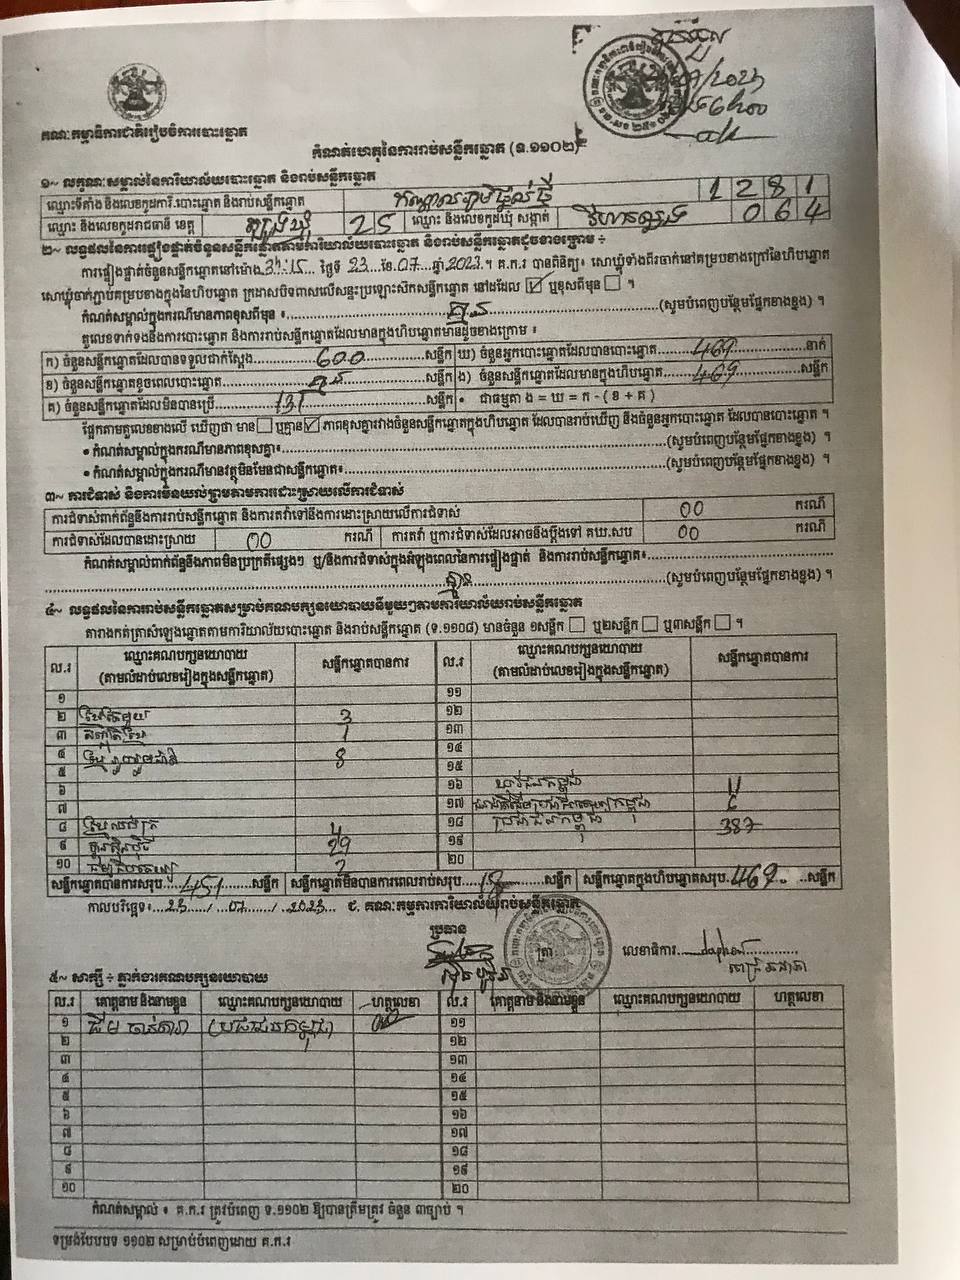 គណៈកម្មាធិការជាតិរៀបចំការបោះឆ្នោត
កំណត់ហេតុនៃការរាប់សន្លឹកឆ្នោត (ទ.១១០២)
១~ លក្ខណៈសម្គាល់នៃការិយាល័យបោះឆ្នោត និងរាប់សន្លឹកឆ្នោត
ឈ្មោះទីតាំង និងលេខកូដការិ.បោះឆ្នោត និងរាប់សន្លឹកឆ្នោត 1 2 8 1
ឈ្មោះ និងលេខកូដរាជធានី ខេត្ត ត្បូងឃ្មុំ 2 5 ឈ្មោះ និងលេខកូដឃុំ សង្កាត់ 0 6 4
២~ លទ្ធផលនៃការផ្ទៀងផ្ទាត់ចំនួនសន្លឹកឆ្នោតតាមការិយាល័យបោះឆ្នោត និងរាប់សន្លឹកឆ្នោតដូចខាងក្រោម ÷
ការផ្ទៀងផ្ទាត់ចំនួនសន្លឹកឆ្នោតនៅម៉ោង 3:15 ថ្ងៃទី 23 ខែ 07 ឆ្នាំ 2023 ។ គ.ក.រ បានពិនិត្យ៖ សោឃ្លុំទាំងពីរចាក់នៅគម្របខាងក្រៅនៃហិបឆ្នោត
សោឃ្លុំចាក់ភ្ជាប់គម្របខាងក្នុងនៃហិបឆ្នោត ក្រដាសបិទពាសលើសន្ទះប្រឡោះសឹកសន្លឹកឆ្នោត នៅដដែល ☑ ឬខុសពីមុន ☐ ។
កំណត់សម្គាល់ក្នុងករណីមានភាពខុសពីមុន ៖ គ្មាន (សូមបំពេញបន្ថែមផ្នែកខាងខ្នង) ។
តួលេខទាក់ទងនឹងការបោះឆ្នោត និងការរាប់សន្លឹកឆ្នោតដែលមានក្នុងហិបឆ្នោតមានដូចខាងក្រោម ៖
ក) ចំនួនសន្លឹកឆ្នោតដែលបានទទួលជាក់ស្តែង 600 សន្លឹក ឃ) ចំនួនអ្នកបោះឆ្នោតដែលបានបោះឆ្នោត 469 នាក់
ខ) ចំនួនសន្លឹកឆ្នោតខូចពេលបោះឆ្នោត គ្មាន សន្លឹក ង) ចំនួនសន្លឹកឆ្នោតដែលមានក្នុងហិបឆ្នោត 469 សន្លឹក
គ) ចំនួនសន្លឹកឆ្នោតដែលមិនបានប្រើ 131 សន្លឹក • ជាធម្មតា ង = ឃ = ក - ( ខ + គ )
ផ្អែកតាមតួលេខខាងលើ ឃើញថា មាន ☐ ឬគ្មាន ☑ ភាពខុសគ្នារវាងចំនួនសន្លឹកឆ្នោតក្នុងហិបឆ្នោត ដែលបានរាប់ឃើញ និងចំនួនអ្នកបោះឆ្នោត ដែលបានបោះឆ្នោត ។
• កំណត់សម្គាល់ក្នុងករណីមានភាពខុសគ្នា៖ (សូមបំពេញបន្ថែមផ្នែកខាងខ្នង) ។
• កំណត់សម្គាល់ក្នុងករណីមានវត្ថុមិនមែនជាសន្លឹកឆ្នោត៖ (សូមបំពេញបន្ថែមផ្នែកខាងខ្នង) ។
៣~ ការជំទាស់ និងការមិនយល់ព្រមតាមការដោះស្រាយលើការជំទាស់
ការជំទាស់ពាក់ព័ន្ធនឹងការរាប់សន្លឹកឆ្នោត និងការតវ៉ាទៅនឹងការដោះស្រាយលើការជំទាស់ 00 ករណី
ការជំទាស់ដែលបានដោះស្រាយ 00 ករណី ការតវ៉ា ឬការជំទាស់ដែលអាចនឹងប្តឹងទៅ គឃ.សប 00 ករណី
កំណត់សម្គាល់ពាក់ព័ន្ធនឹងភាពមិនប្រក្រតីផ្សេងៗ ឬ/និងការជំទាស់ក្នុងអំឡុងពេលនៃការផ្ទៀងផ្ទាត់ និងការរាប់សន្លឹកឆ្នោត៖
គ្មាន (សូមបំពេញបន្ថែមផ្នែកខាងខ្នង) ។
៤~ លទ្ធផលនៃការរាប់សន្លឹកឆ្នោតសម្រាប់គណបក្សនយោបាយនីមួយៗតាមការិយាល័យរាប់សន្លឹកឆ្នោត
តារាងកត់ត្រាសំឡេងឆ្នោតតាមការិយាល័យបោះឆ្នោត និងរាប់សន្លឹកឆ្នោត (ទ.១១០៨) មានចំនួន ១សន្លឹក ☐ ឬ២សន្លឹក ☐ ឬ៣សន្លឹក ☐ ។
ល.រ ឈ្មោះគណបក្សនយោបាយ (តាមលំដាប់លេខរៀងក្នុងសន្លឹកឆ្នោត) សន្លឹកឆ្នោតបានការ ល.រ ឈ្មោះគណបក្សនយោបាយ (តាមលំដាប់លេខរៀងក្នុងសន្លឹកឆ្នោត) សន្លឹកឆ្នោតបានការ
១ ១១
២ 3 ១២
៣ 1 ១៣
៤ ខ្មែររួបរួមជាតិ 8 ១៤
៥ ១៥
៦ ១៦
៧ ១៧
៨ 4 ១៨ ប្រជាជនកម្ពុជា 387
៩ ហ្វ៊ុនស៊ិនប៉ិច 29 ១៩
១០ 2 ២០
សន្លឹកឆ្នោតបានការសរុប 451 សន្លឹក សន្លឹកឆ្នោតមិនបានការពេលរាប់សរុប 18 សន្លឹក សន្លឹកឆ្នោតក្នុងហិបឆ្នោតសរុប 469 សន្លឹក
កាលបរិច្ឆេទ៖ 23 / 07 / 2023 ៩. គណៈកម្មការការិយាល័យរាប់សន្លឹកឆ្នោត
ប្រធាន
ត្រា លេខាធិការ
៥~ សាក្សី ÷ ភ្នាក់ងារគណបក្សនយោបាយ
ល.រ គោត្តនាម និងនាមខ្លួន ឈ្មោះគណបក្សនយោបាយ ហត្ថលេខា ល.រ គោត្តនាម និងនាមខ្លួន ឈ្មោះគណបក្សនយោបាយ ហត្ថលេខា
១ ប្រជាជនកម្ពុជា ១១
២ ១២
៣ ១៣
៤ ១៤
៥ ១៥
៦ ១៦
៧ ១៧
៨ ១៨
៩ ១៩
១០ ២០
កំណត់សម្គាល់ ៖ គ.ក.រ ត្រូវបំពេញ ទ.១១០២ ឱ្យបានត្រឹមត្រូវ ចំនួន ៣ច្បាប់ ។
ទម្រង់បែបបទ ១១០២ សម្រាប់បំពេញដោយ គ.ក.រ